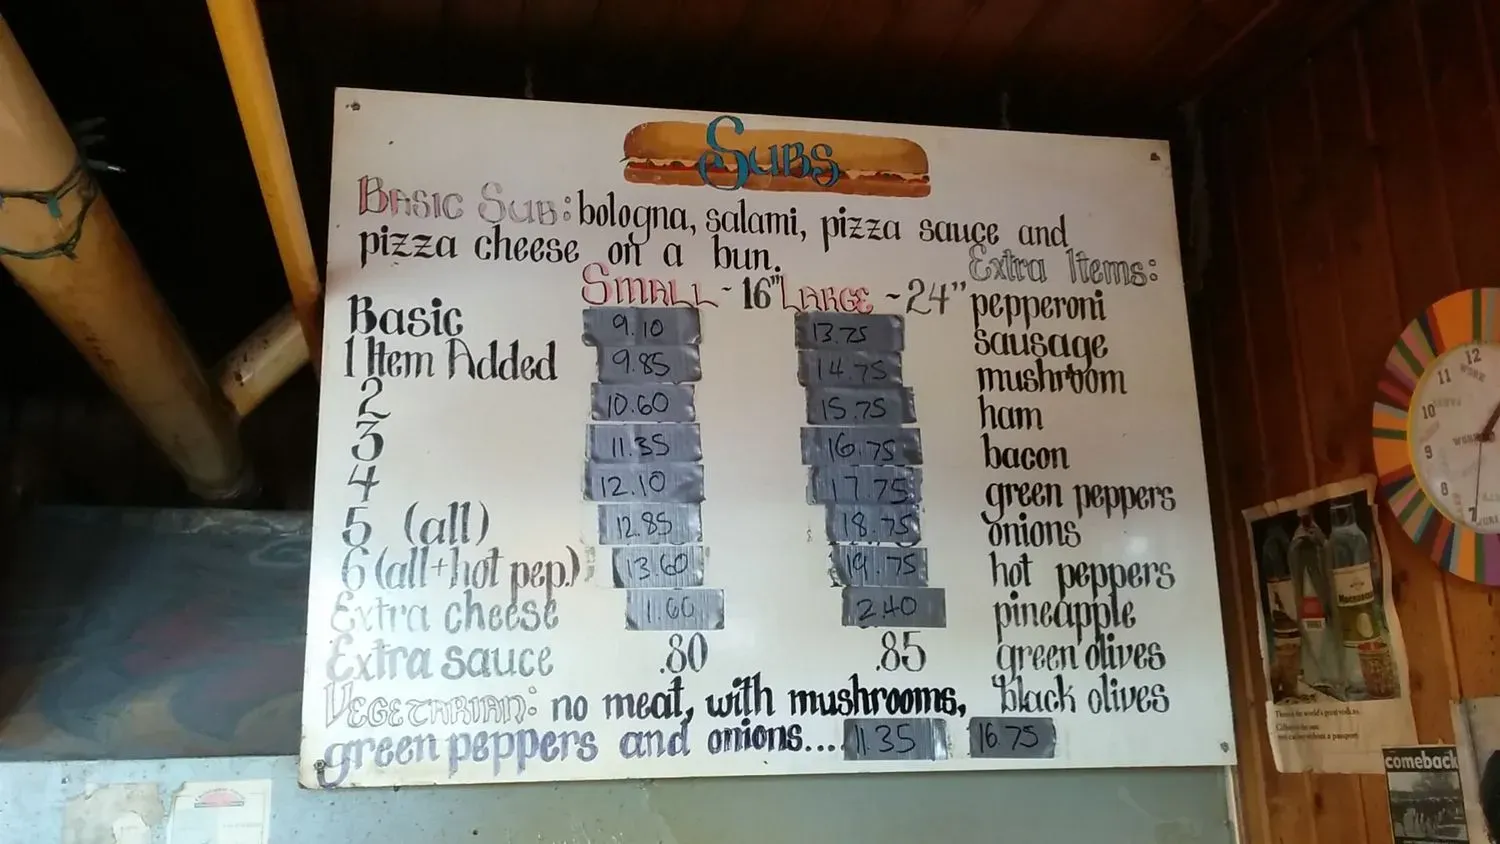 SUBS
BASIC SUB: bologna, salami, pizza sauce and
pizza cheese on a bun.
Extra Items:
SMALL - 16" LARGE ~ 24"
Basic 9.10 13.75
1 Item Added 9.85 14.75
2 10.60 15.75
3 11.35 16.75
4 12.10 17.75
5 (all) 12.85 18.75
6 (all+hot pep.) 13.60 19.75
Extra cheese 1.60 2.40
Extra sauce .80 .85
pepperoni
sausage
mushroom
ham
bacon
green peppers
onions
hot peppers
pineapple
green olives
black olives
VEGETARIAN: no meat, with mushrooms,
green peppers and onions.... 11.35 16.75
12
11
10
9
8
7
comeback